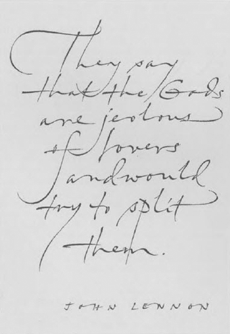 They say
that the Gods
are jealous
of lovers
and would
try to split
them.
JOHN LENNON